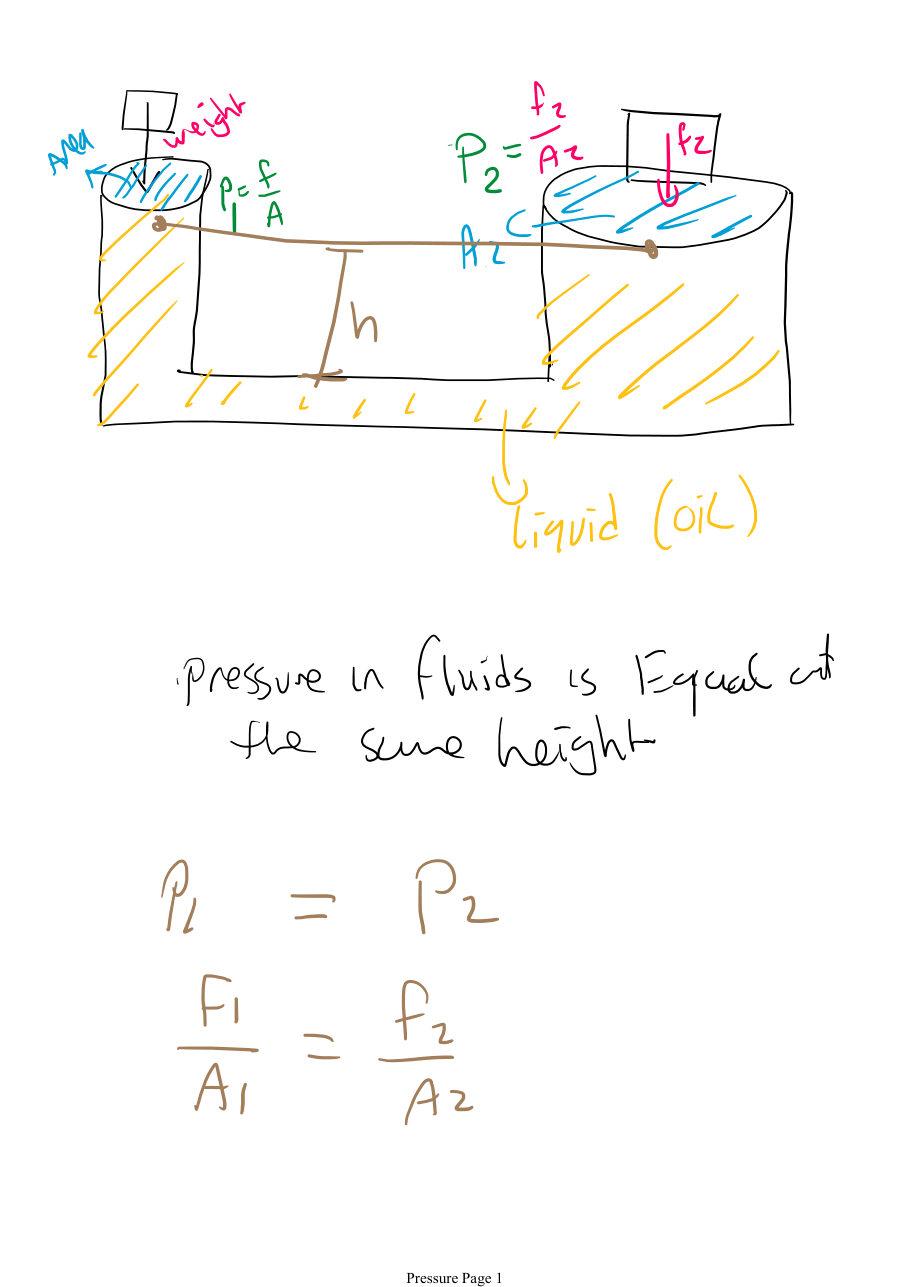 weight
Area
P1 = f/A
P2 = f2/A2
f2
A2
h
liquid (oil)
pressure in fluids is Equal at
the same height
P1 = P2
F1/A1 = f2/A2
Pressure Page 1